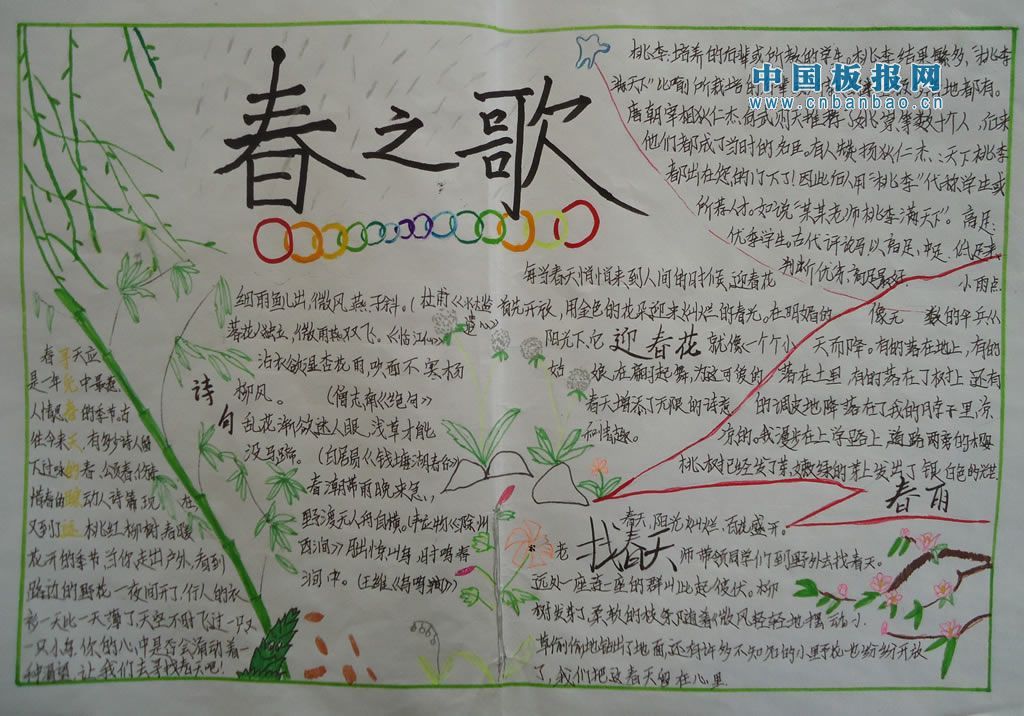 春之歌
中国板报网
www.cnbanbao.cn
桃李:培养的后辈或所教的学生。桃李结果繁多,"桃李
满天下"比喻所栽培的
地都有。
唐朝宰相狄仁杰,向武则天推荐了姚崇等数十个人,后来
他们都成了当时的名臣。有人赞扬狄仁杰:天下桃李
都出在您的门下了!因此后人用"桃李"代称学生或
所荐人才。如说"某某老师桃李满天下"。高足:
优秀学生,古代评论马以高足、中足、低足来
判断优劣,高足最好
诗句
细雨鱼儿出,微风燕子斜。(杜甫《水槛遣心》
落花人独立,微雨燕双飞。《临江仙》
沾衣欲湿杏花雨,吹面不寒杨
柳风。(僧志南《绝句》
乱花渐欲迷人眼,浅草才能
没马蹄。(白居易《钱塘湖春行》
春潮带雨晚来急,
野渡无人舟自横。(韦应物《滁州
西涧》月出惊山鸟,时鸣春
涧中。(王维《鸟鸣涧》
迎春花
每当春天悄悄来到人间的时候,迎春花
首先开放,用金色的花朵迎来灿烂的春光。在明媚的
阳光下,它
就像一个个小
姑娘,在翩翩起舞,为这可爱的
春天增添了无限的诗意
和情趣。
春雨
小雨点
像无数的伞兵从
天而降。有的落在地上,有的
落在土里,有的落在了树上,还有
的调皮地降落在了我的脖子里,凉
凉的。我漫步在上学路上,道路两旁的樱
桃树已经发了芽,嫩绿的芽上发出了银白色的光芒
找春天
春天,阳光灿烂,百花盛开。
老师带领同学们到野外去找春天。
近处一座连一座的群山此起彼伏。柳
树发芽了,柔软的枝条随着微风轻轻地摆动。小
草偷偷地钻出了地面,还有许多不知名的小野花也纷纷开放
了,我们把这春天留在心里。
寻觅春天的踪迹
春天应
是一年中最惹
人情思的季节,古
往今来,有多少诗人留
下过咏春、颂春、伤春、
惜春的动人诗篇,现在,
又到了桃红柳树春暖
花开的季节,当你走出户外,看到
路边的野花一夜间开了,行人的衣
衫一天比一天薄了,天空不时飞过一只
只小鸟,你的心中是否会涌动着一
种渴望,让我们去寻找春天吧!